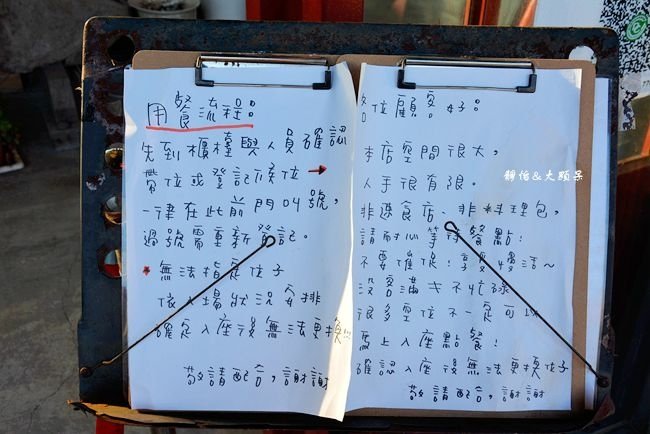 用餐流程:
先到櫃檯與人員確認
帶位或登記候位 →
一律在此前門叫號,
過號需重新登記。
* 無法指定位子
依入場狀況安排
確定入座後無法更換!!!
敬請配合,謝謝
各位顧客好:
本店空間很大,
人手很有限。
非速食店、非料理包,
請耐心等待餐點!
不要催促!享受慢活~
沒客滿才不忙碌
很多空位不一定可以
馬上入座點餐!
確認入座後無法更換位子
敬請配合,謝謝
靜怡&大顆呆